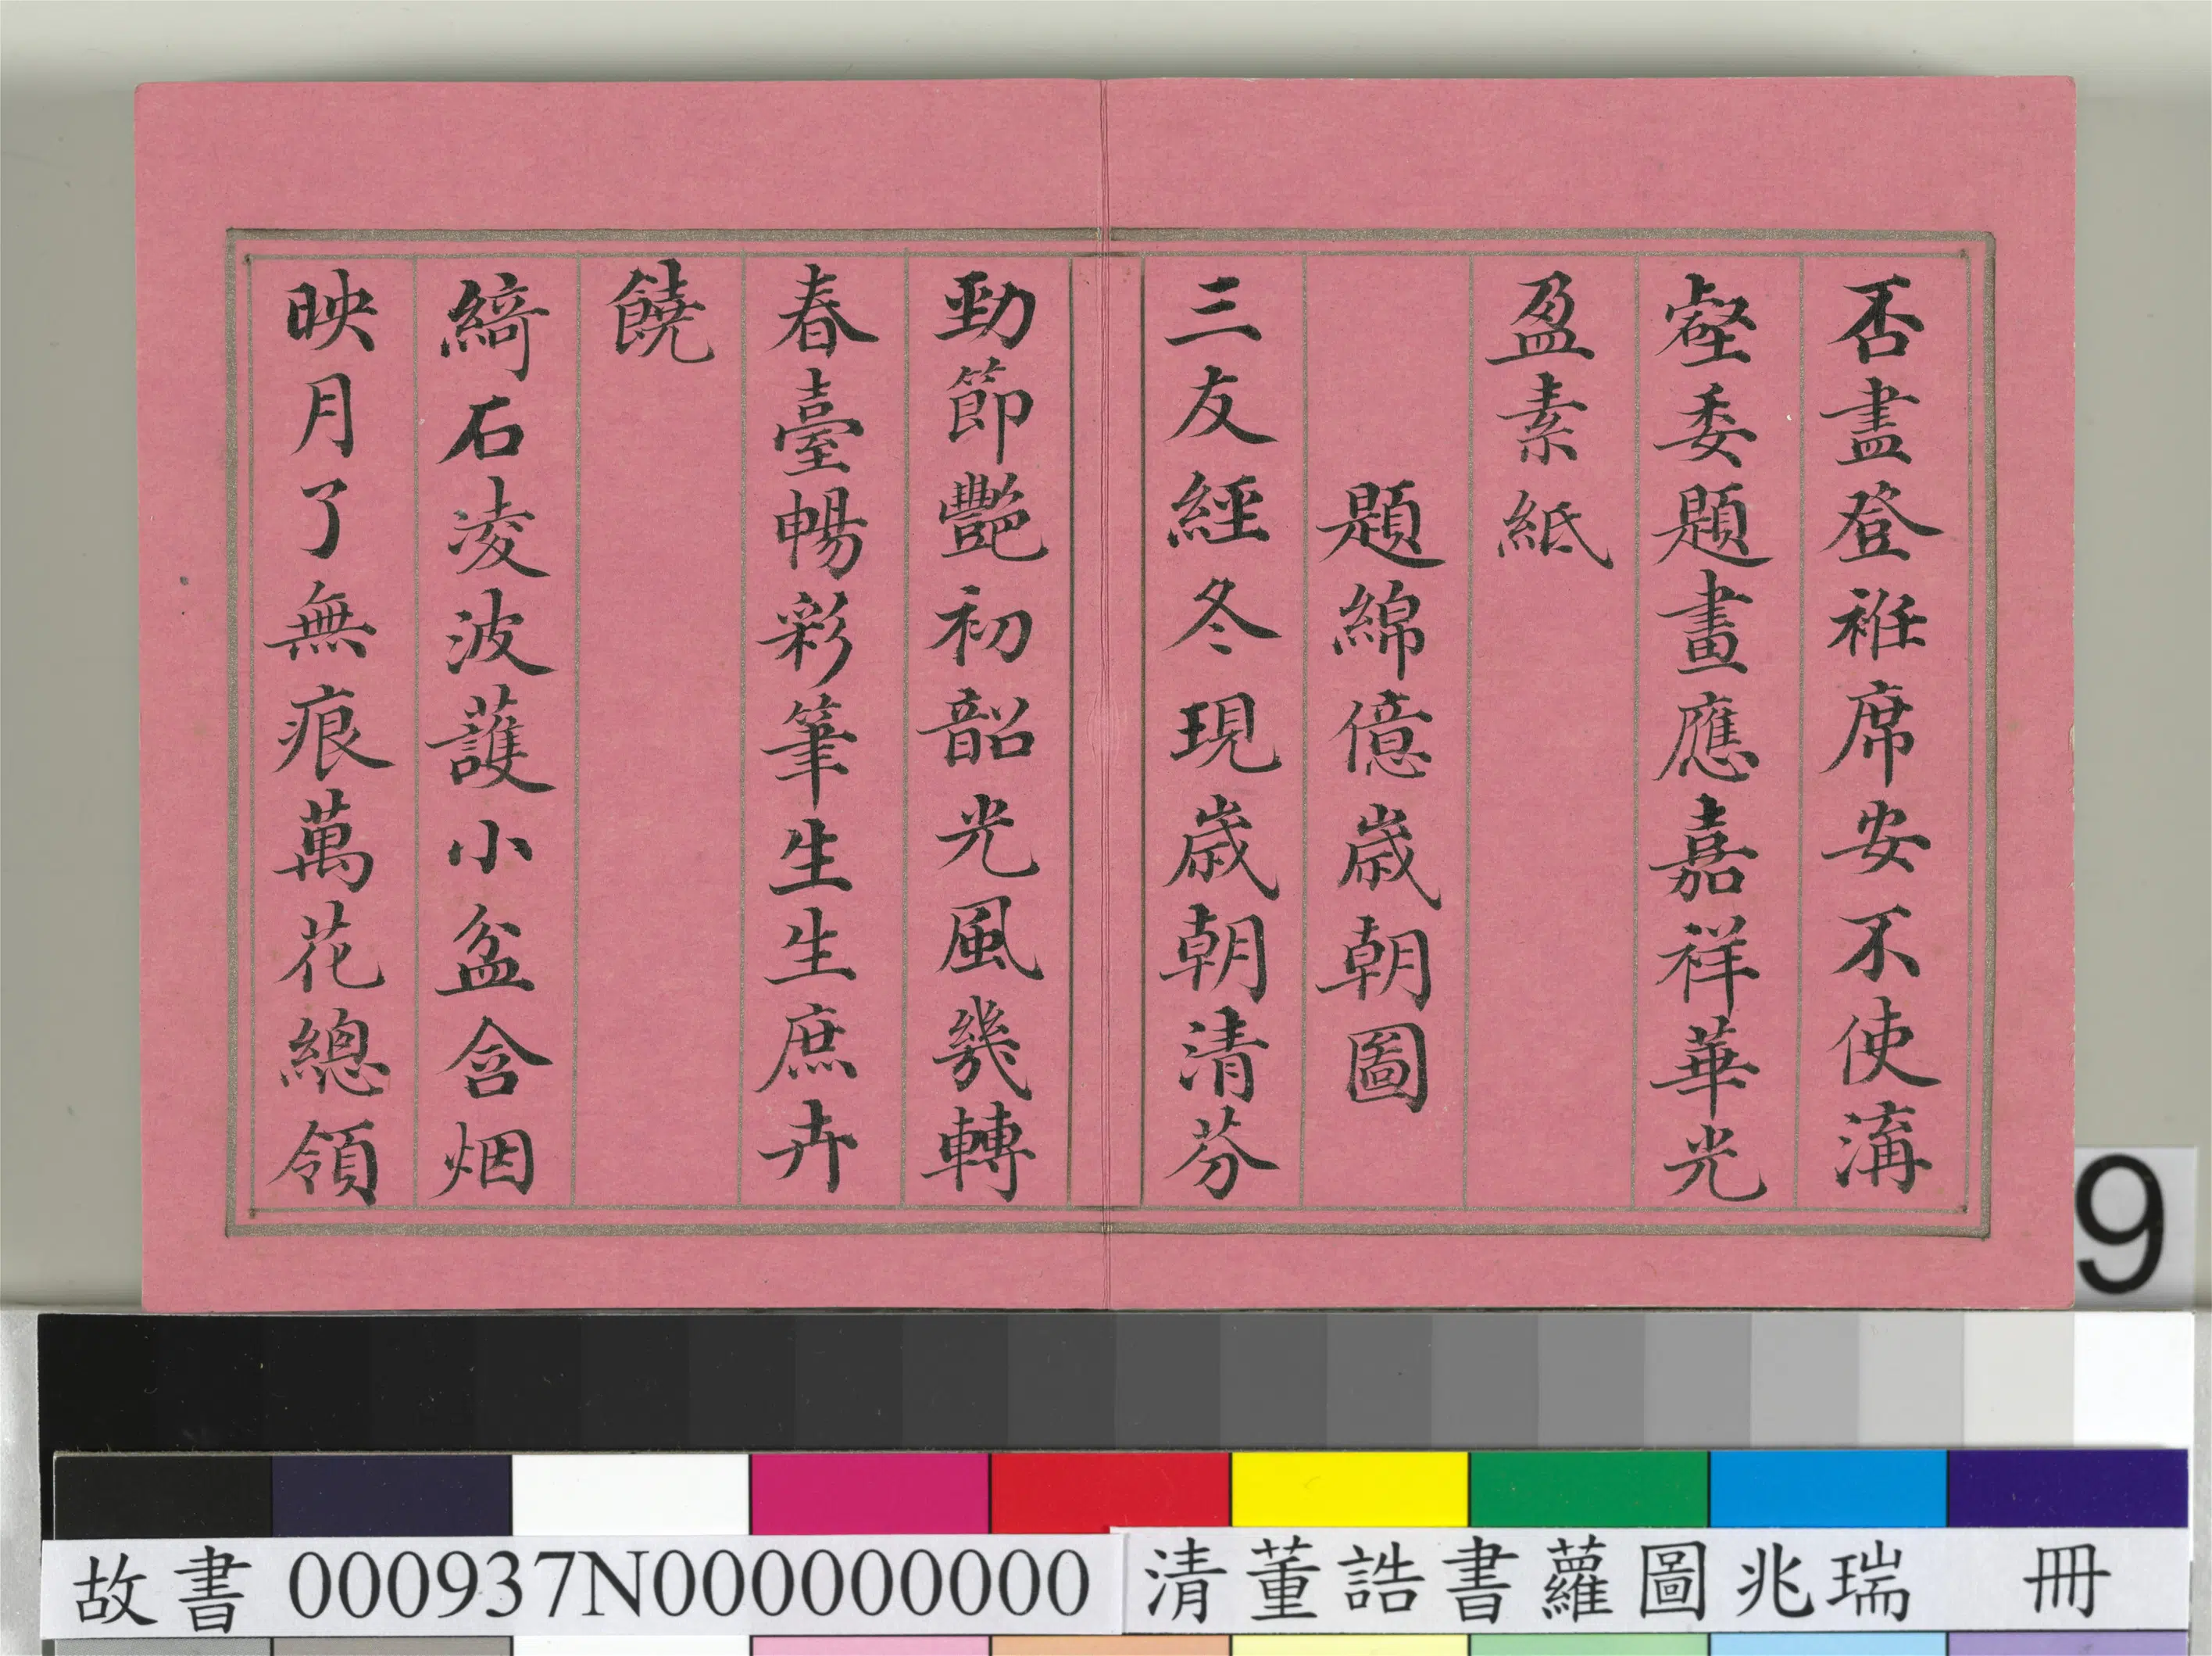 否盡登袵席安不使溝
壑委題畫應嘉祥華光
盈素紙
題綿億歲朝圖
三友經冬現歲朝清芬
勁節艷初韶光風幾轉
春臺暢彩筆生生庶卉
饒
綺石凌波護小盆含烟
映月了無痕萬花總領
9
故書 000937N000000000 清董誥書蘿圖兆瑞 冊